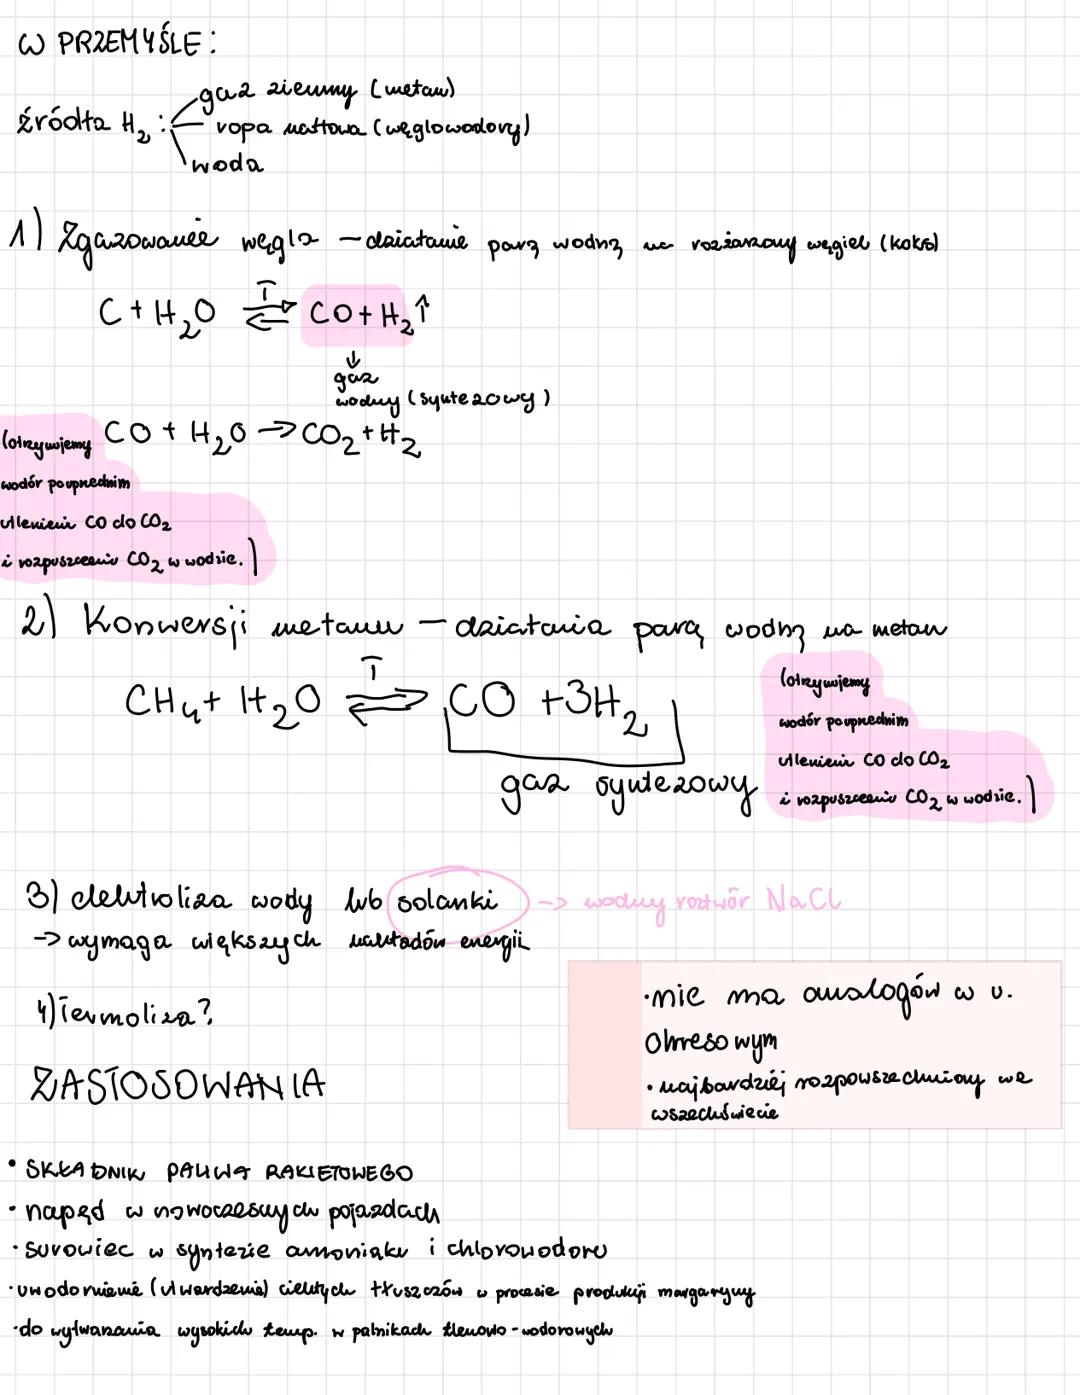 W PRZEMYŚLE:
gaz ziemny (metan)
źródła H₂: ropa naftowa (węglowodory)
woda
1) Zgazowanie węgla – działanie parą wodną na rozżarzony węgiel (koks)
C + H₂O ⇌ CO + H₂↑
T
↓
gaz
wodny (syntezowy)
CO + H₂O → CO₂ + H₂
(otrzymujemy
wodór po uprzednim
utlenieniu CO do CO₂
i rozpuszczeniu CO₂ w wodzie.)
2) Konwersji metanu – działania parą wodną na metan
T
CH₄ + H₂O ⇌ CO + 3H₂
gaz syntezowy
(otrzymujemy
wodór po uprzednim
utlenieniu CO do CO₂
i rozpuszczeniu CO₂ w wodzie.)
3) elektroliza wody lub solanki → wodny roztwór NaCl
→ wymaga większych nakładów energii
4) Termoliza?
• nie ma analogów w u.
okresowym
• najbardziej rozpowszechniony we
wszechświecie
ZASTOSOWANIA
• SKŁADNIK PALIWA RAKIETOWEGO
• napęd w nowoczesnych pojazdach
• surowiec w syntezie amoniaku i chlorowodoru
• uwodornienie (utwardzenie) ciekłych tłuszczów w procesie produkcji margaryny
• do wytwarzania wysokich temp. w palnikach tlenowo-wodorowych